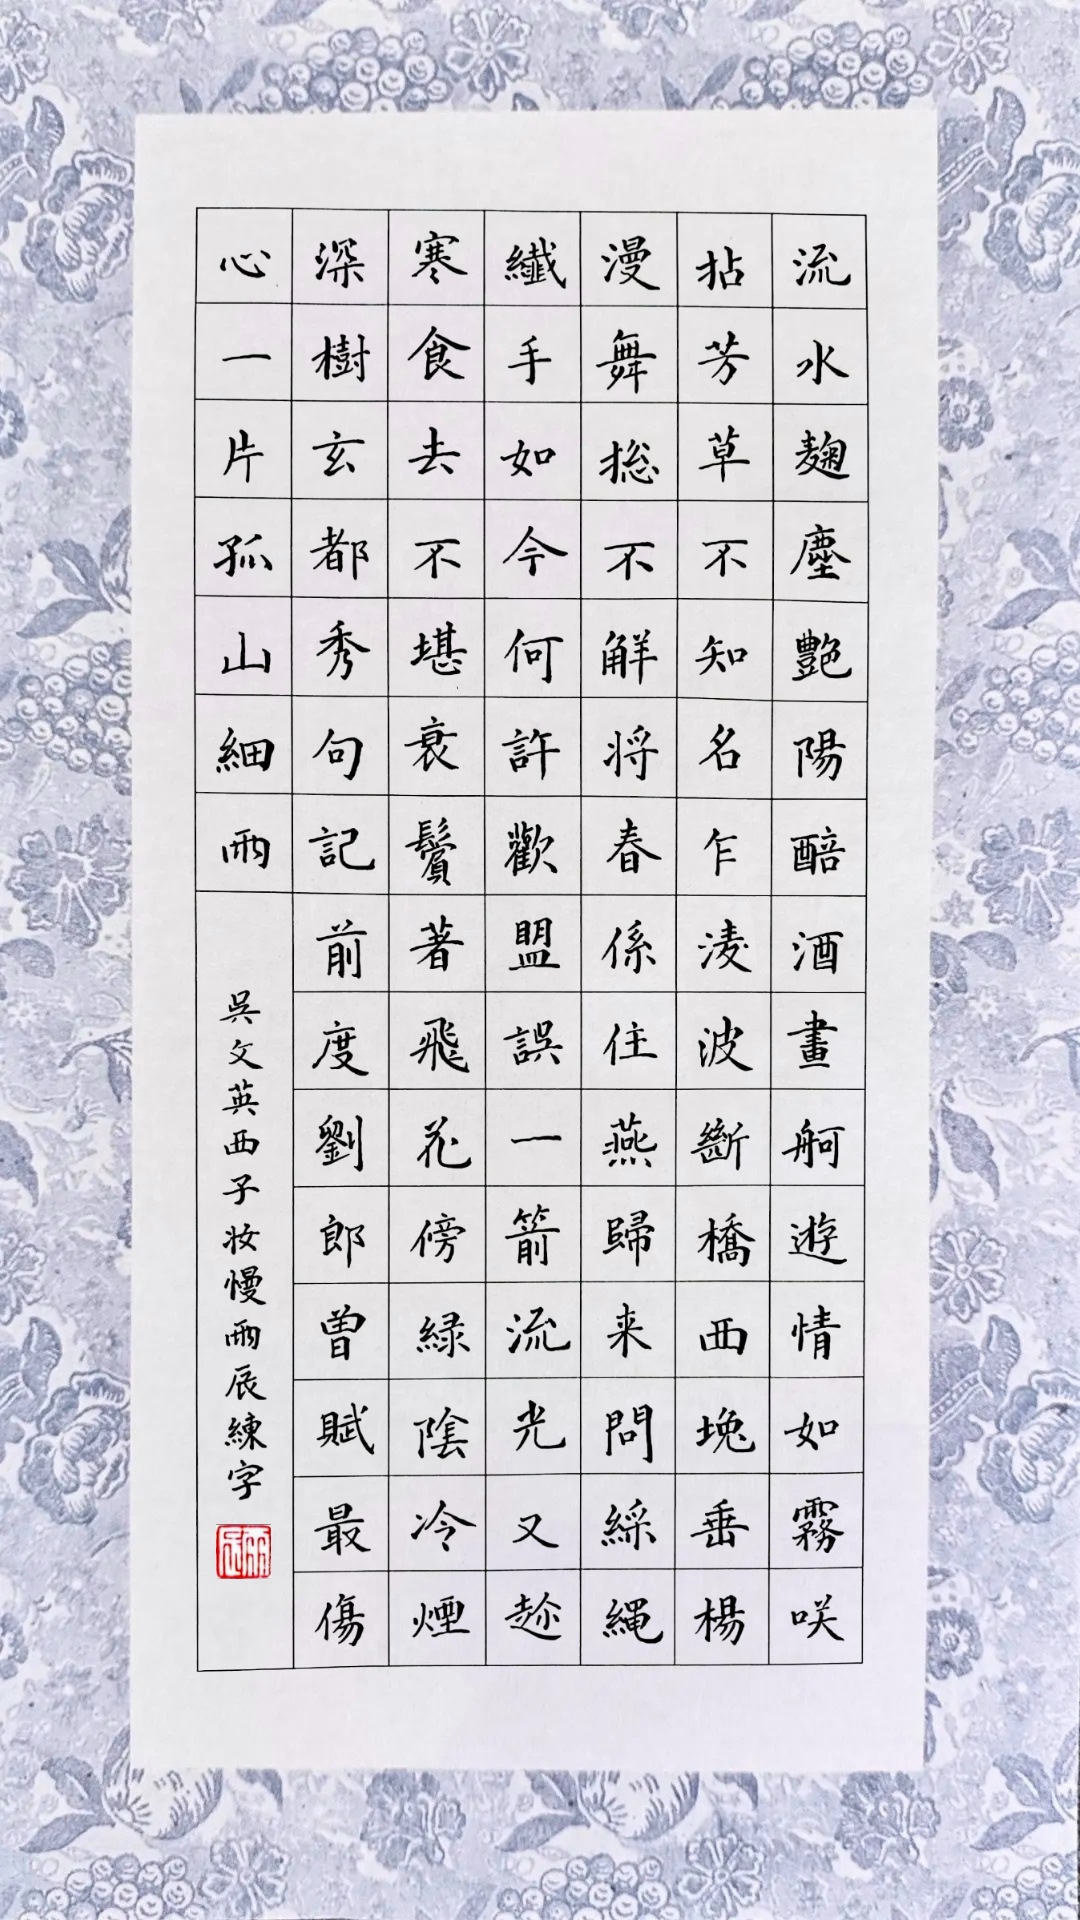 流水麹塵艷陽醅酒畫舸遊情如霧咲
拈芳草不知名乍淩波斷橋西堍垂楊
漫舞揔不解将春係住燕歸来問綵繩
纖手如今何許歡盟誤一箭流光又趂
寒食去不堪衰鬢著飛花傍緑陰冷煙
深樹玄都秀句記前度劉郎曾賦最傷
心一片孤山細雨
吳文英西子妝慢雨辰練字
雨辰